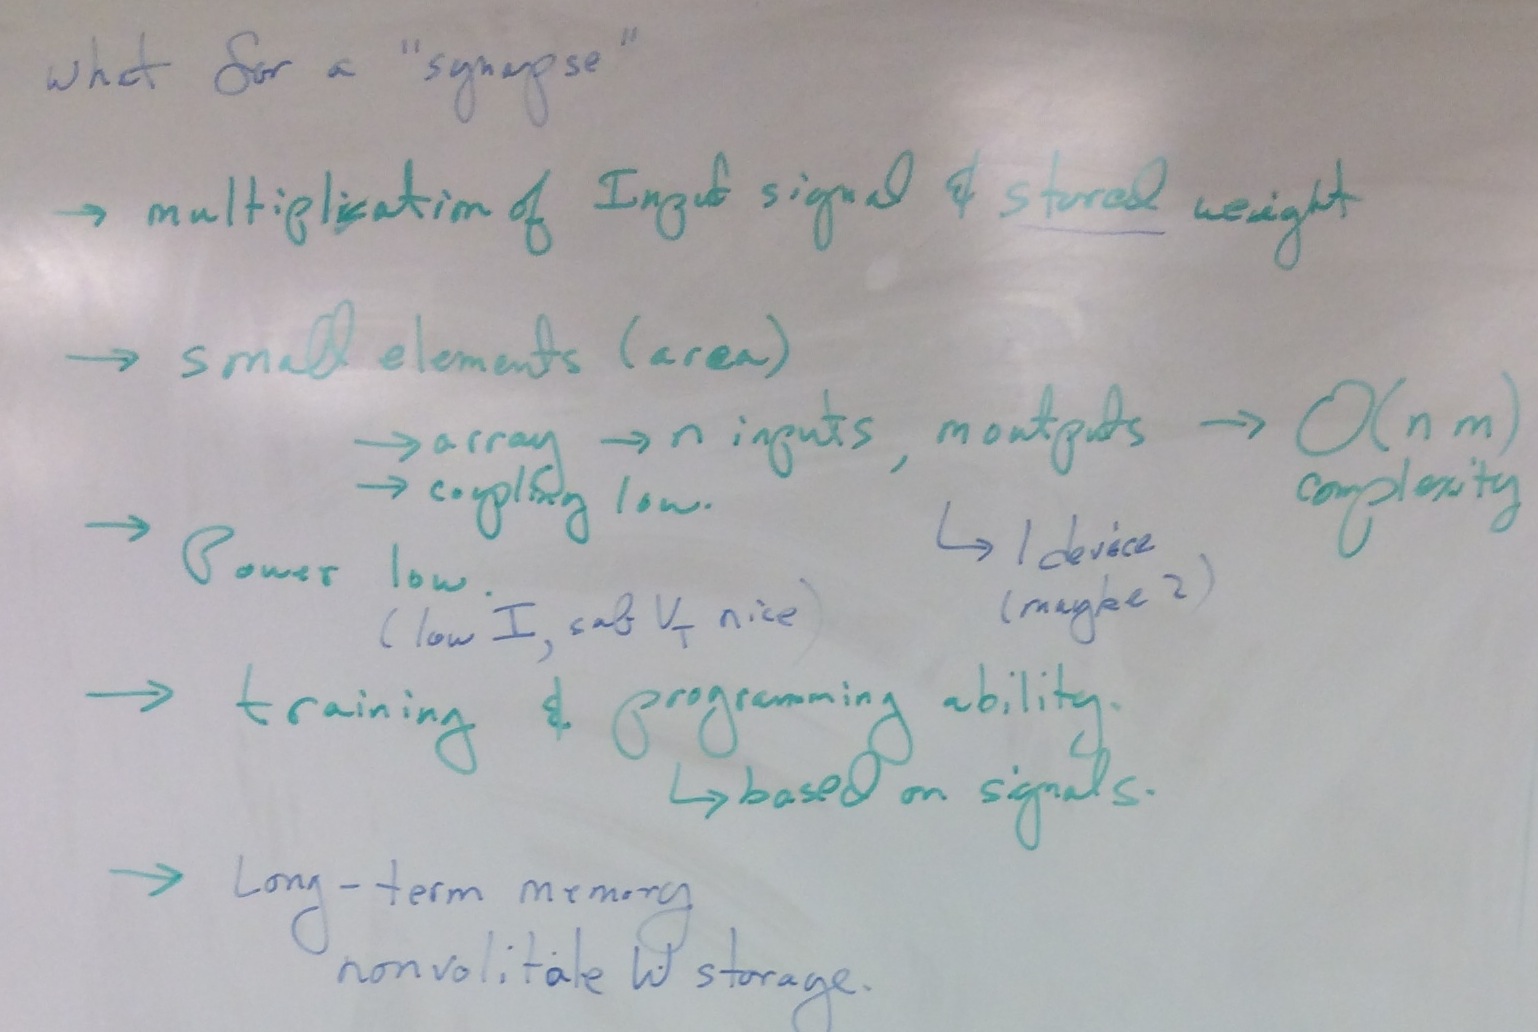 what for a "synapse"
→ multiplication of Input signal & stored weight
→ small elements (area)
→ array → n inputs, m outputs → O(n m)
complexity
→ coupling low.
↳ 1 device
(maybe 2)
→ Power low.
(low I, sub V_T nice)
→ training & programming ability.
↳ based on signals.
→ Long-term memory
nonvolitale W storage.